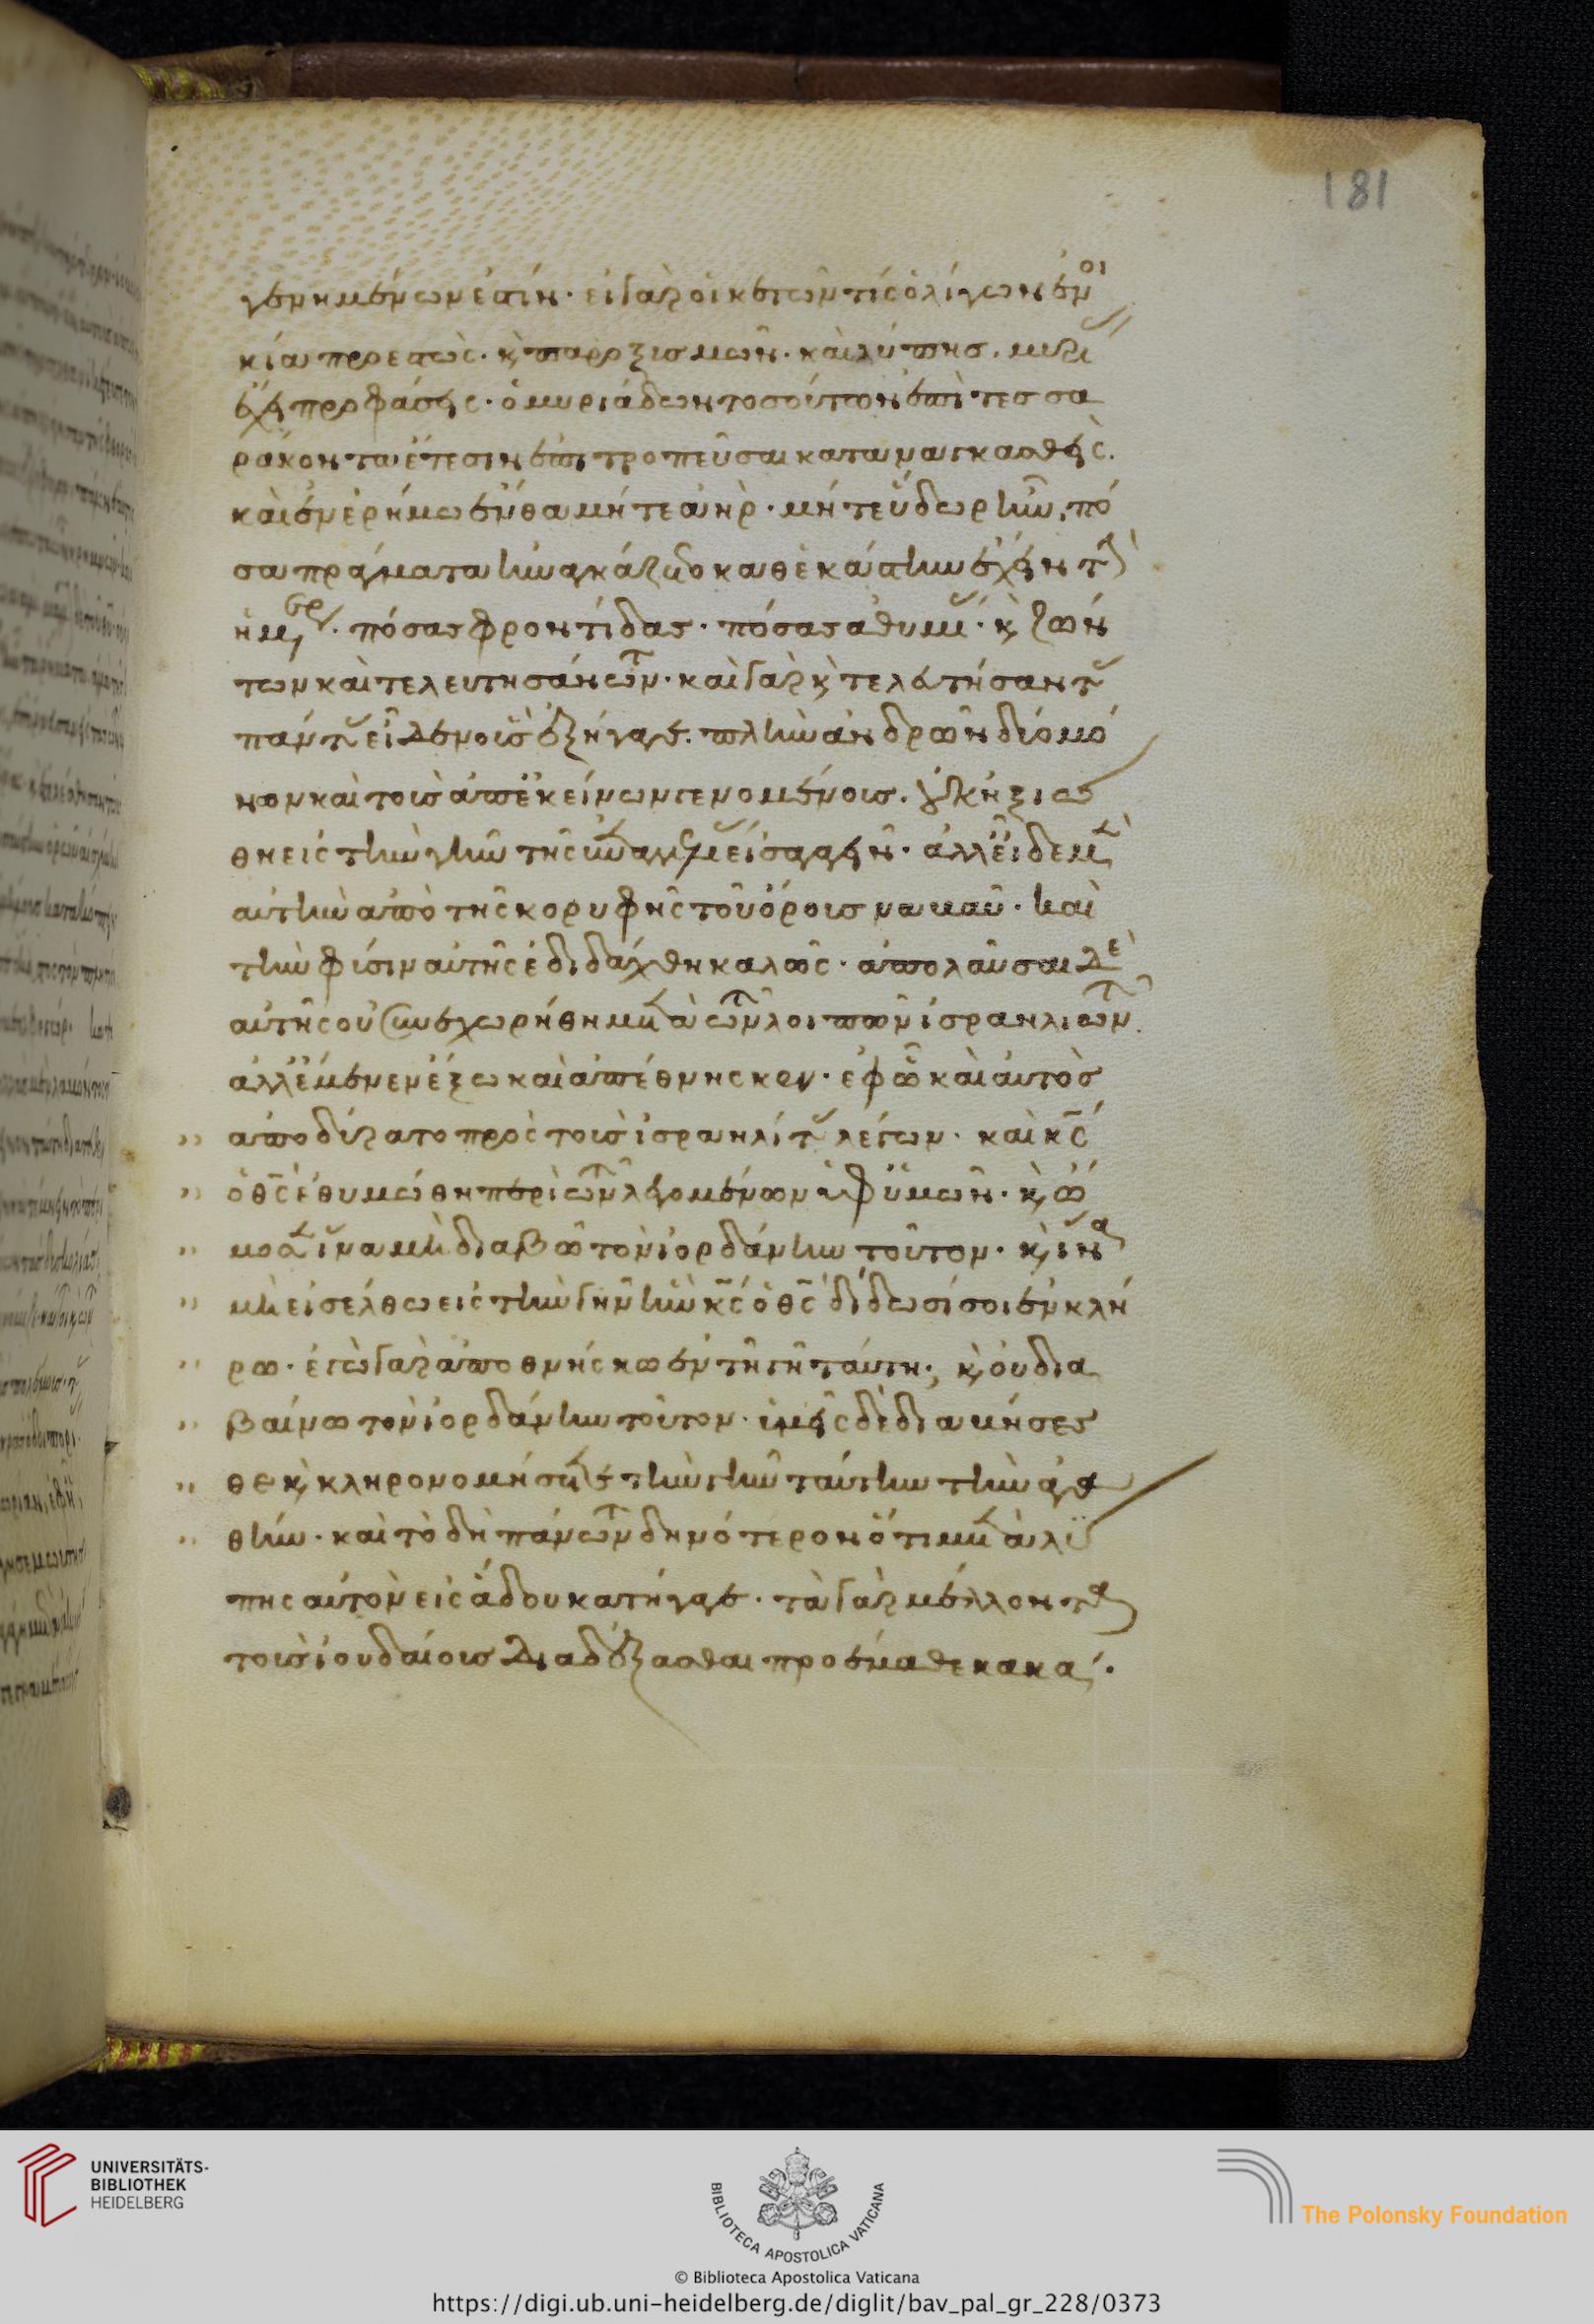 181
γενημένων ἐστίν· εἰ γὰρ οἰκετῶν τίς ὀλίγων ἐν οι
κία προεστὼς· κ παροξισμῶν· καὶ λύπης. μυρί
ἔχει προφάσεις· ὁ μυριάδων τοσούτων ἐπὶ τεσσα
ράκοντα ἔτεσιν ἐπιτροπεῦσαι καταναγκασθεὶς.
καὶ ἐν ἐρήμω ἔνθα μήτε ἀὴρ· μήτε ὕδωρ ἦν, πό
σα πράγματα ἠναγκάζετο καθ' ἑκάστην ἔχειν τὴν
ἡμέρ· πόσας φροντίδας· πόσας ἀθυμί· κ ζών
των καὶ τελευτησάντων· καὶ γὰρ κ τελευτήσαντ
πάντ εἶδεν οὓς ἐξήγαγε. πλὴν ἀνδρῶν δύο μό
νων καὶ τοῖς ἀπ' ἐκείνων γενομένοις. οὐκ ἠξιώ
θη εἰς τὴν γῆν τῆς ἐπαγγελί εἰσαγαγεῖν· ἀλλ' εἶδε μὲν
αὐτὴν ἀπὸ τῆς κορυφῆς τοῦ ὄρους ναυαῦ· καὶ
τὴν φύσιν αὐτῆς ἐδιδάχθη καλῶς· ἀπολαῦσαι δὲ
αὐτῆς οὐ συνεχωρήθη μετὰ τῶν λοιπῶν ἰσραηλιτῶν.
ἀλλ' ἔμενεν ἔξω καὶ ἀπέθνησκεν· ἐφ' ὧ καὶ αὐτὸς
ἀπωδύρατο πρὸς τοὺς ἰσραηλίτ λέγων· καὶ κς
ὁ θς ἐθυμώθη περὶ τῶν λεγομένων ὑφ' ὑμῶν· κ ὤ
μοσεν ἵνα μὴ διαβῶ τὸν ἰορδάνην τοῦτον· κ ἵνα
μὴ εἰσέλθω εἰς τὴν γῆν ἣν κς ὁ θς δίδωσί σοι ἐν κλή
ρω· ἐγὼ γὰρ ἀποθνήσκω ἐν τῆ γῆ ταύτη·, κ οὐ δια
βαίνω τὸν ἰορδάνην τοῦτον· ὑμεῖς δὲ διαβήσεσ
θε κ κληρονομήσετε τὴν γῆν ταύτην τὴν ἀγα
θήν· καὶ τὸ δὴ πάντων δεινότερον ὅτι μετὰ λύ
πης αὐτὸν εἰς ἅδου κατήγαγε· τὰ γὰρ μέλλοντα
τοὺς ἰουδαίους διαδέξασθαι προέμαθε κακά·
UNIVERSITÄTS-
BIBLIOTHEK
HEIDELBERG
BIBLIOTECA APOSTOLICA VATICANA
The Polonsky Foundation
© Biblioteca Apostolica Vaticana
https://digi.ub.uni-heidelberg.de/diglit/bav_pal_gr_228/0373